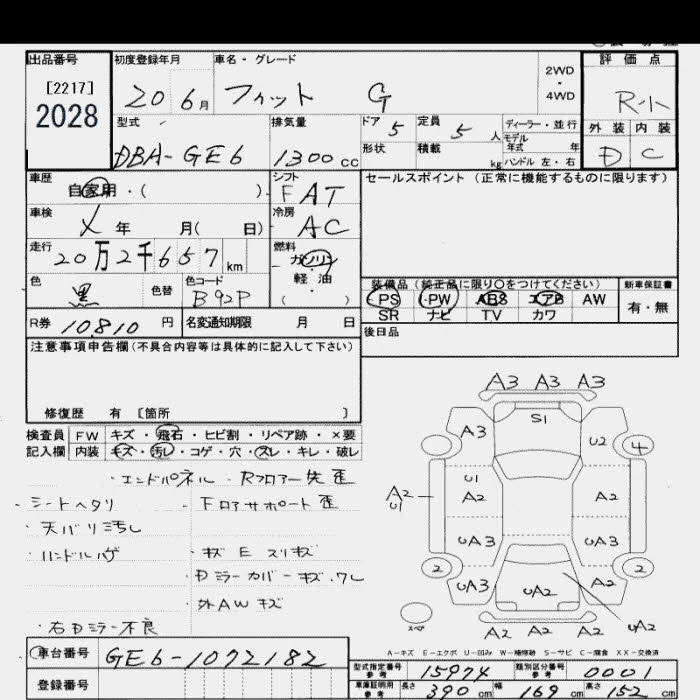 出品番号 初度登録年月 車名・グレード 2WD・4WD 評価点
[2217]
2028
20 6月 フィット G R小
型式 排気量 ドア 5 定員 5人 ディーラー・並行 外装 内装
モデル年式 年
形状 積載 kg ハンドル 左・右
DBA-GE6 1300cc D C
車歴 自家用・( ) シフト FAT セールスポイント (正常に機能するものに限ります)
車検 年 月( 日) 冷房 AC
走行 20万2千657km 燃料 ガソリン・軽油( )
色 黒 色替 色コード B92P
装備品 (純正品に限り○をつけてください) 新車保証書
PS PW ABS エアB AW 有・無
SR ナビ TV カワ
R券 10810円 名変通知期限 月 日 後日品
注意事項申告欄(不具合内容等は具体的に記入して下さい)
修復歴 有 [箇所 ]
検査員記入欄 FW キズ・飛石・ヒビ割・リペア跡・×要
内装 キズ・汚レ・コゲ・穴・スレ・キレ・破レ
・エンドパネル ・Rフロアー先 歪
・シートヘタリ ・Fロアサポート歪
・天バリ汚し
・ハンドルハゲ ・キズ E スリキズ
・Dミラーカバーキズ.ワレ
・外AWキズ
・右Dミラー不良
A3 A3 A3
S1
A3 U2 4
U1
A2 U1 A2 A2
UA3 A3
2 2
UA3 UA2 A2
UA2
スペア A2 A2 A2
A-キズ E-エクボ U-凹み W-補修跡 S-サビ C-腐食 XX-交換済
車台番号 GE6-1072182
登録番号
型式指定番号参考 15974 類別区分番号参考 0001
車庫証明用参考 長さ 390cm 幅 169cm 高さ 152cm